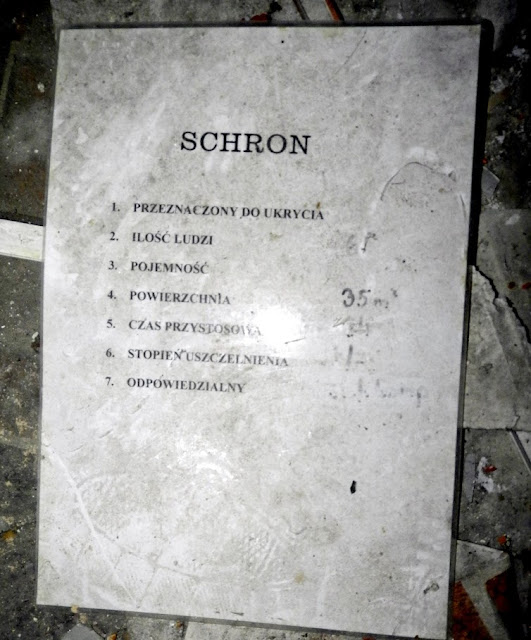 SCHRON
1. PRZEZNACZONY DO UKRYCIA
2. ILOŚĆ LUDZI
3. POJEMNOŚĆ
4. POWIERZCHNIA 35 m²
5. CZAS PRZYSTOSOWA
6. STOPIEŃ USZCZELNIENIA
7. ODPOWIEDZIALNY